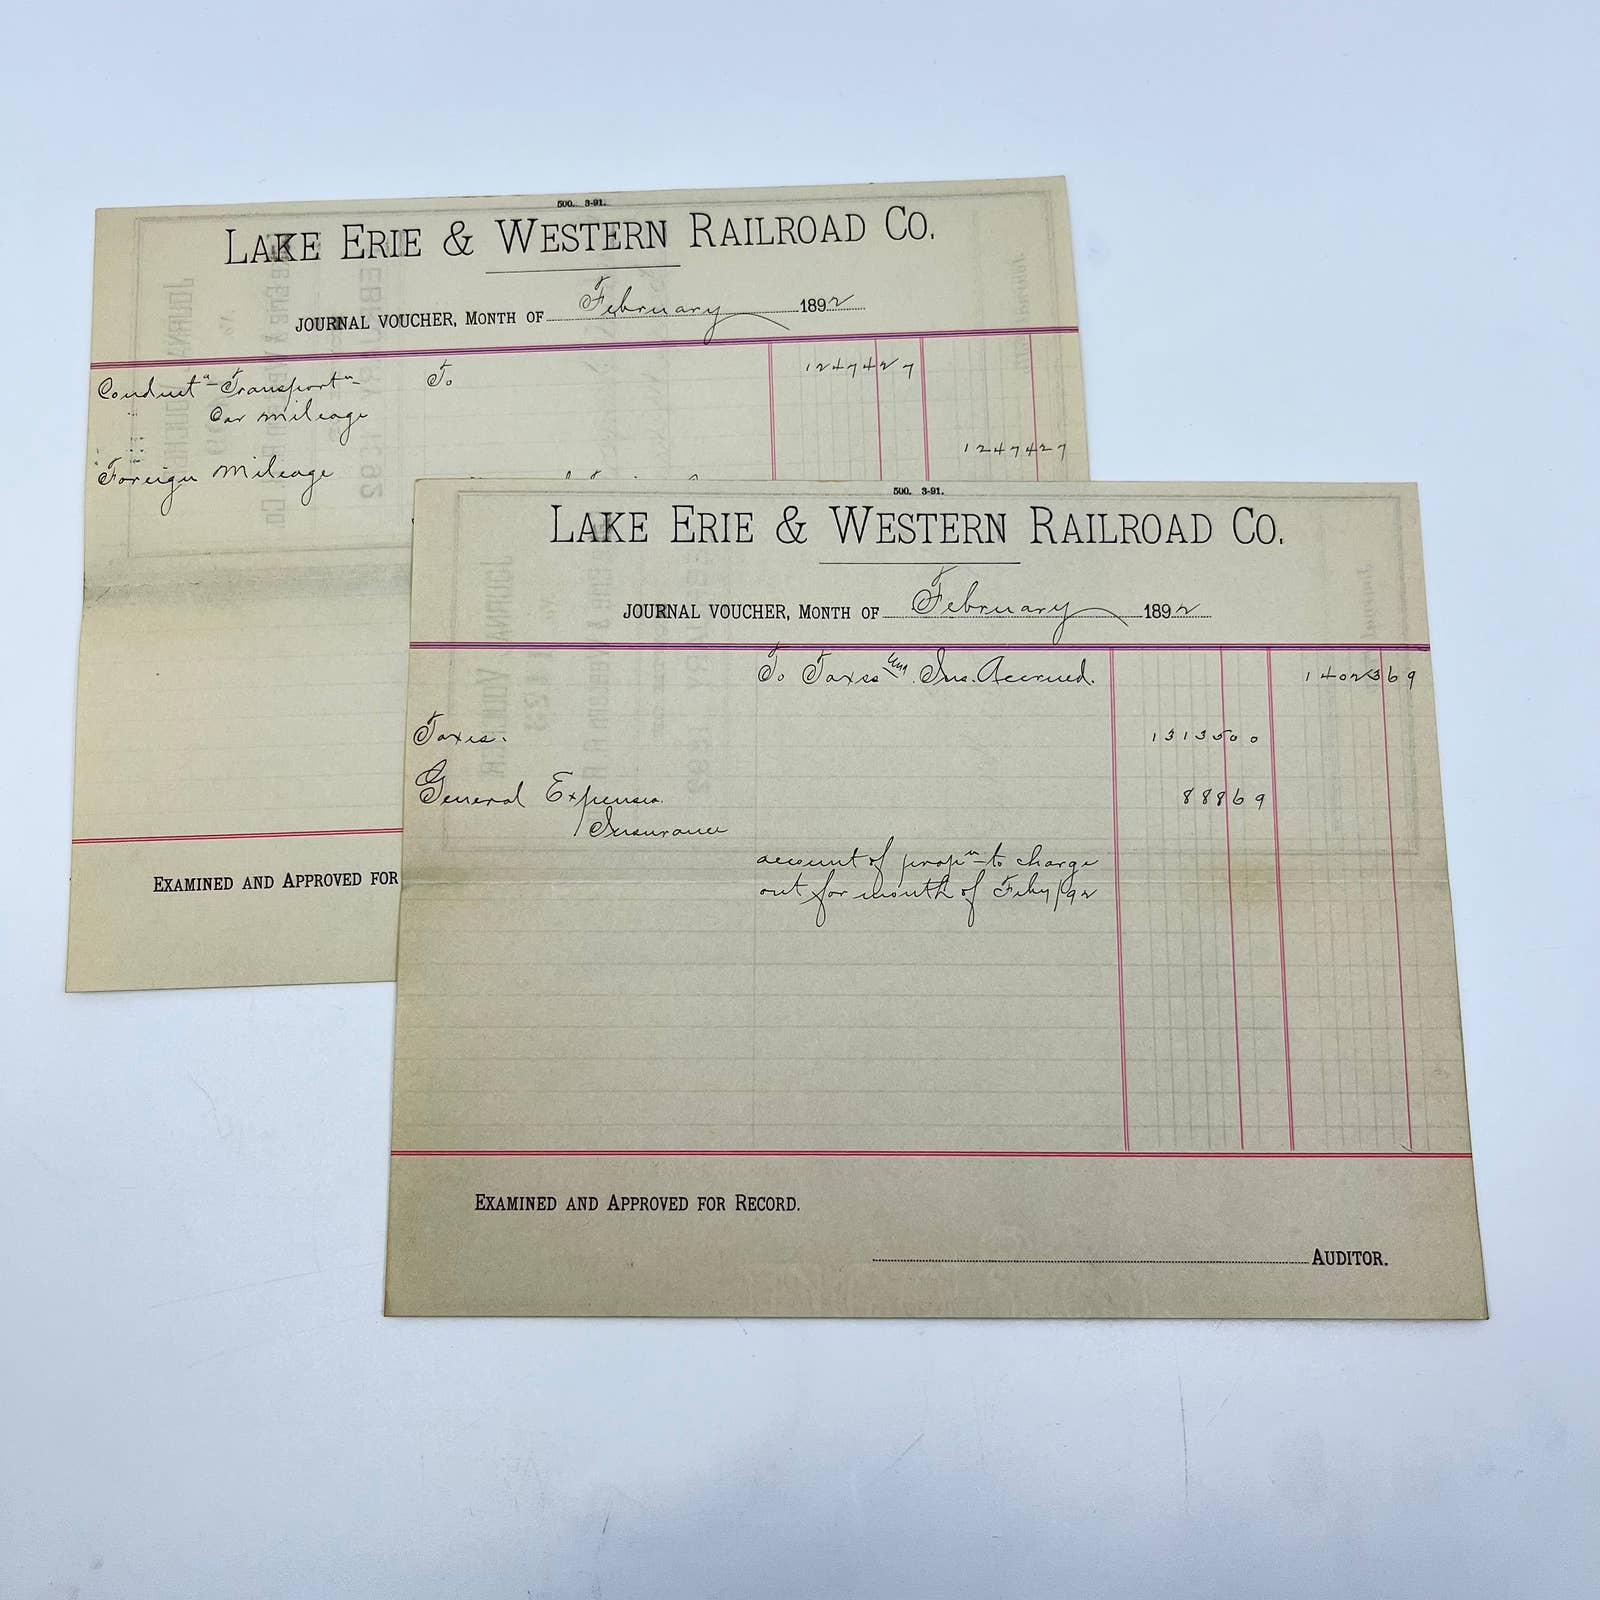 500. 3-91.
LAKE ERIE & WESTERN RAILROAD CO.
JOURNAL VOUCHER, MONTH OF February 1892
Conduct⁠ⁿ Transportⁿ To 12474 27
Car mileage
12474 27
Foreign Mileage
EXAMINED AND APPROVED FOR
500. 3-91.
LAKE ERIE & WESTERN RAILROAD CO.
JOURNAL VOUCHER, MONTH OF February 1892
To Taxes and Ins. Accrued. 14023 69
Taxes. 13135 00
General Expenses. 888 69
Insurance
account of propⁿ to charge
out for month of Feby/92
EXAMINED AND APPROVED FOR RECORD.
AUDITOR.